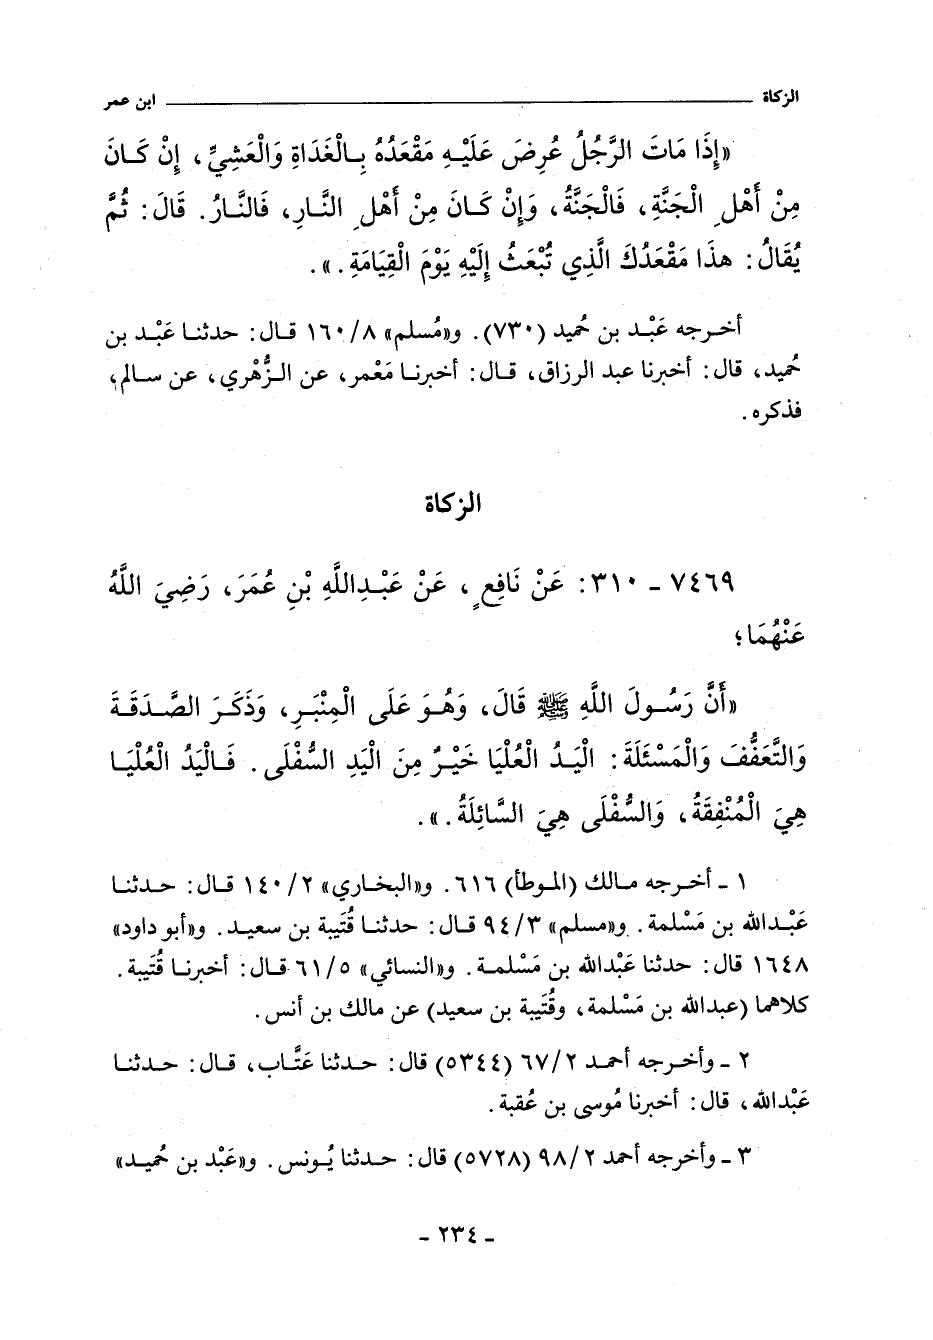 الزكاة ابن عمر
«إِذَا مَاتَ الرَّجُلُ عُرِضَ عَلَيْهِ مَقْعَدُهُ بِالْغَدَاةِ وَالْعَشِيِّ، إِنْ كَانَ
مِنْ أَهْلِ الْجَنَّةِ، فَالْجَنَّةُ، وَإِنْ كَانَ مِنْ أَهْلِ النَّارِ، فَالنَّارُ. قَالَ: ثُمَّ
يُقَالُ: هذَا مَقْعَدُكَ الَّذِي تُبْعَثُ إِلَيْهِ يَوْمَ الْقِيَامَةِ.».
أخرجه عَبْد بن حُميد (٧٣٠). و«مُسلم» ١٦٠/٨ قال: حدثنا عَبْد بن
حُميد، قال: أخبرنا عبد الرزاق، قال: أخبرنا مَعْمر، عن الزُّهْري، عن سالم،
فذكره.
الزكاة
٧٤٦٩ - ٣١٠: عَنْ نَافِعٍ، عَنْ عَبْدِاللَّهِ بْنِ عُمَرَ، رَضِيَ اللَّهُ
عَنْهُمَا؛
«أَنَّ رَسُولَ اللَّهِ ﷺ قَالَ، وَهُوَ عَلَى الْمِنْبَرِ، وَذَكَرَ الصَّدَقَةَ
وَالتَّعَفُّفَ وَالْمَسْئَلَةَ: الْيَدُ الْعُلْيَا خَيْرٌ مِنَ الْيَدِ السُّفْلَى. فَالْيَدُ الْعُلْيَا
هِيَ الْمُنْفِقَةُ، وَالسُّفْلَى هِيَ السَّائِلَةُ.».
١ - أخرجه مالك (الموطأ) ٦١٦. و«البخاري» ١٤٠/٢ قال: حدثنا
عَبْدالله بن مَسْلمة. و«مسلم» ٩٤/٣ قال: حدثنا قُتَيبة بن سعيد. و«أبو داود»
١٦٤٨ قال: حدثنا عَبْدالله بن مَسْلمة. و«النسائي» ٦١/٥ قال: أخبرنا قُتَيبة.
كلاهما (عبدالله بن مَسْلمة، وقُتَيبة بن سعيد) عن مالك بن أنس.
٢ - وأخرجه أحمد ٦٧/٢ (٥٣٤٤) قال: حدثنا عَتَّاب، قال: حدثنا
عَبْدالله، قال: أخبرنا مُوسى بن عُقبة.
٣ - وأخرجه أحمد ٩٨/٢ (٥٧٢٨) قال: حدثنا يُونس. و«عَبْد بن حُميد»
- ٢٣٤ -